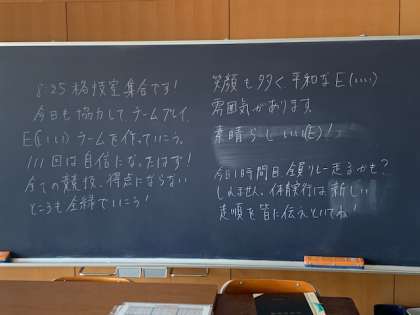 8:25 格技室集合です!
今日も協力して、チームプレイ、
E(いい)チームを作っていこう。
111回は自信になったはず!
全ての競技、得点にならない
ところも全緑でいこう!
笑顔も多く、平和なE(いい)
雰囲気があります
素晴らしいいい(E)!
今日1時間目、全員リレー走るかも?
しれません。体験実行は新しい
走順を皆に伝えといてね!